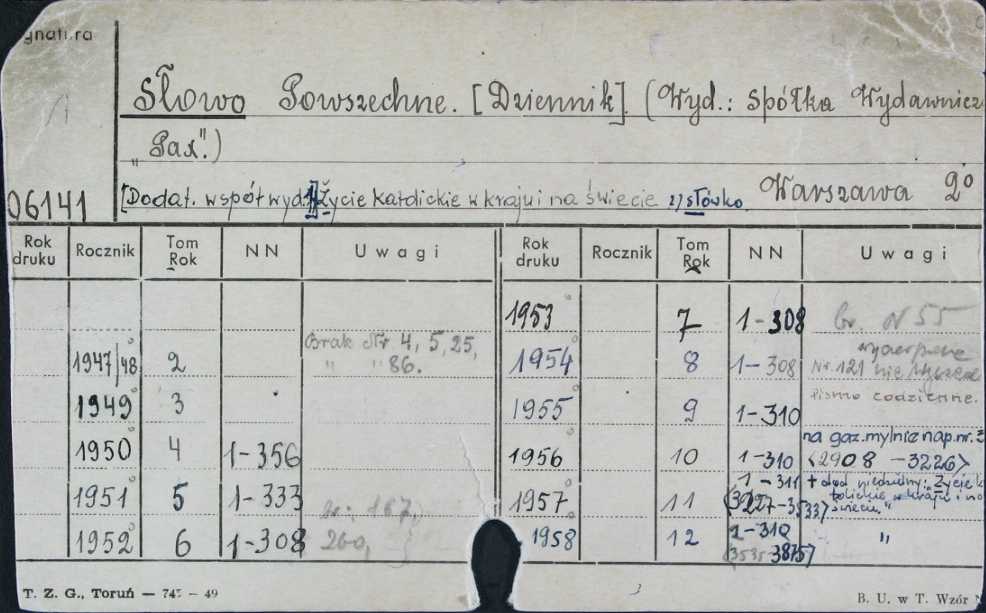 Słowo Powszechne. [Dziennik]. (Wyd.: Spółka Wydawnicz
„Pax".)
06141 [Dodat. współwyd. 1) Życie Katolickie w kraju i na świecie 2) Słówko. Warszawa 2°
Rok druku Rocznik Tom Rok NN Uwagi Rok druku Rocznik Tom Rok NN Uwagi
1953 7 1-308 Br. N 55
1947/48 2 Brak Nr 4, 5, 25, " " 86. 1954 8 1-308 Nr. 121
1949 3 1955 9 1-310 Pismo codzienne.
1950 4 1-356 1956 10 1-310 na gaz. mylnie nap. nr. <2908 - 3226>
1951 5 1-333 1957 11 1-311 (3227-3533) + dod niedzielny: „Życie katolickie w kraju i na świecie."
1952 6 1-308 260, 1958 12 1-310 (3535-3875) "
T. Z. G., Toruń — 745 - 49 B. U. w T. Wzór